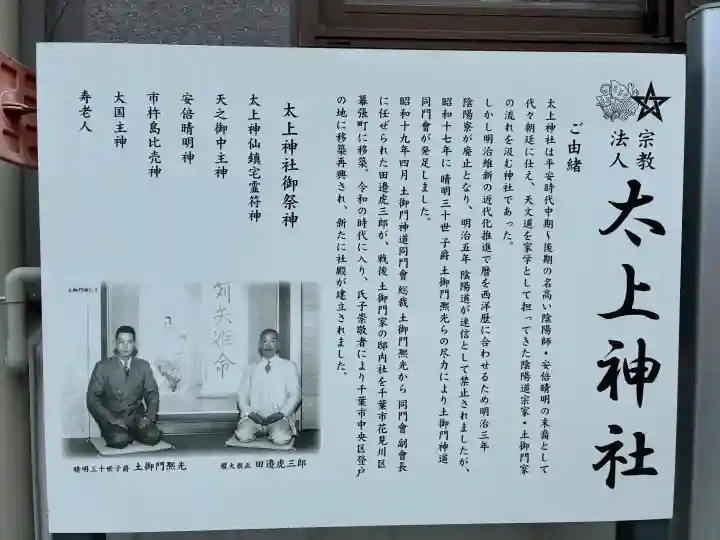 宗教
法人
太上神社
ご由緒
太上神社は平安時代中期〜後期の名高い陰陽師・安倍晴明の末裔として
代々朝廷に仕え、天文道を家学として担ってきた陰陽道宗家・土御門家
の流れを汲む神社であった。
しかし明治維新の近代化推進で暦を西洋歴に合わせるため明治三年
陰陽寮が廃止となり、明治五年 陰陽道が迷信として禁止されましたが、
昭和十七年に 晴明三十世 子爵 土御門凞光らの尽力により土御門神道
同門會が発足しました。
昭和十九年四月 土御門神道同門會 総裁 土御門凞光から 同門會 副會長
に任ぜられた田邉虎三郎が、戦後 土御門家の邸内社を千葉市花見川区
幕張町に移築。令和の時代に入り、氏子崇敬者により千葉市中央区登戸
の地に移築再興され、新たに社殿が建立されました。
太上神社御祭神
太上神仙鎮宅霊符神
天之御中主神
安倍晴明神
市杵島比売神
大国主神
寿老人
土御門邸にて
晴明三十世子爵 土御門凞光
権大教正 田邉虎三郎